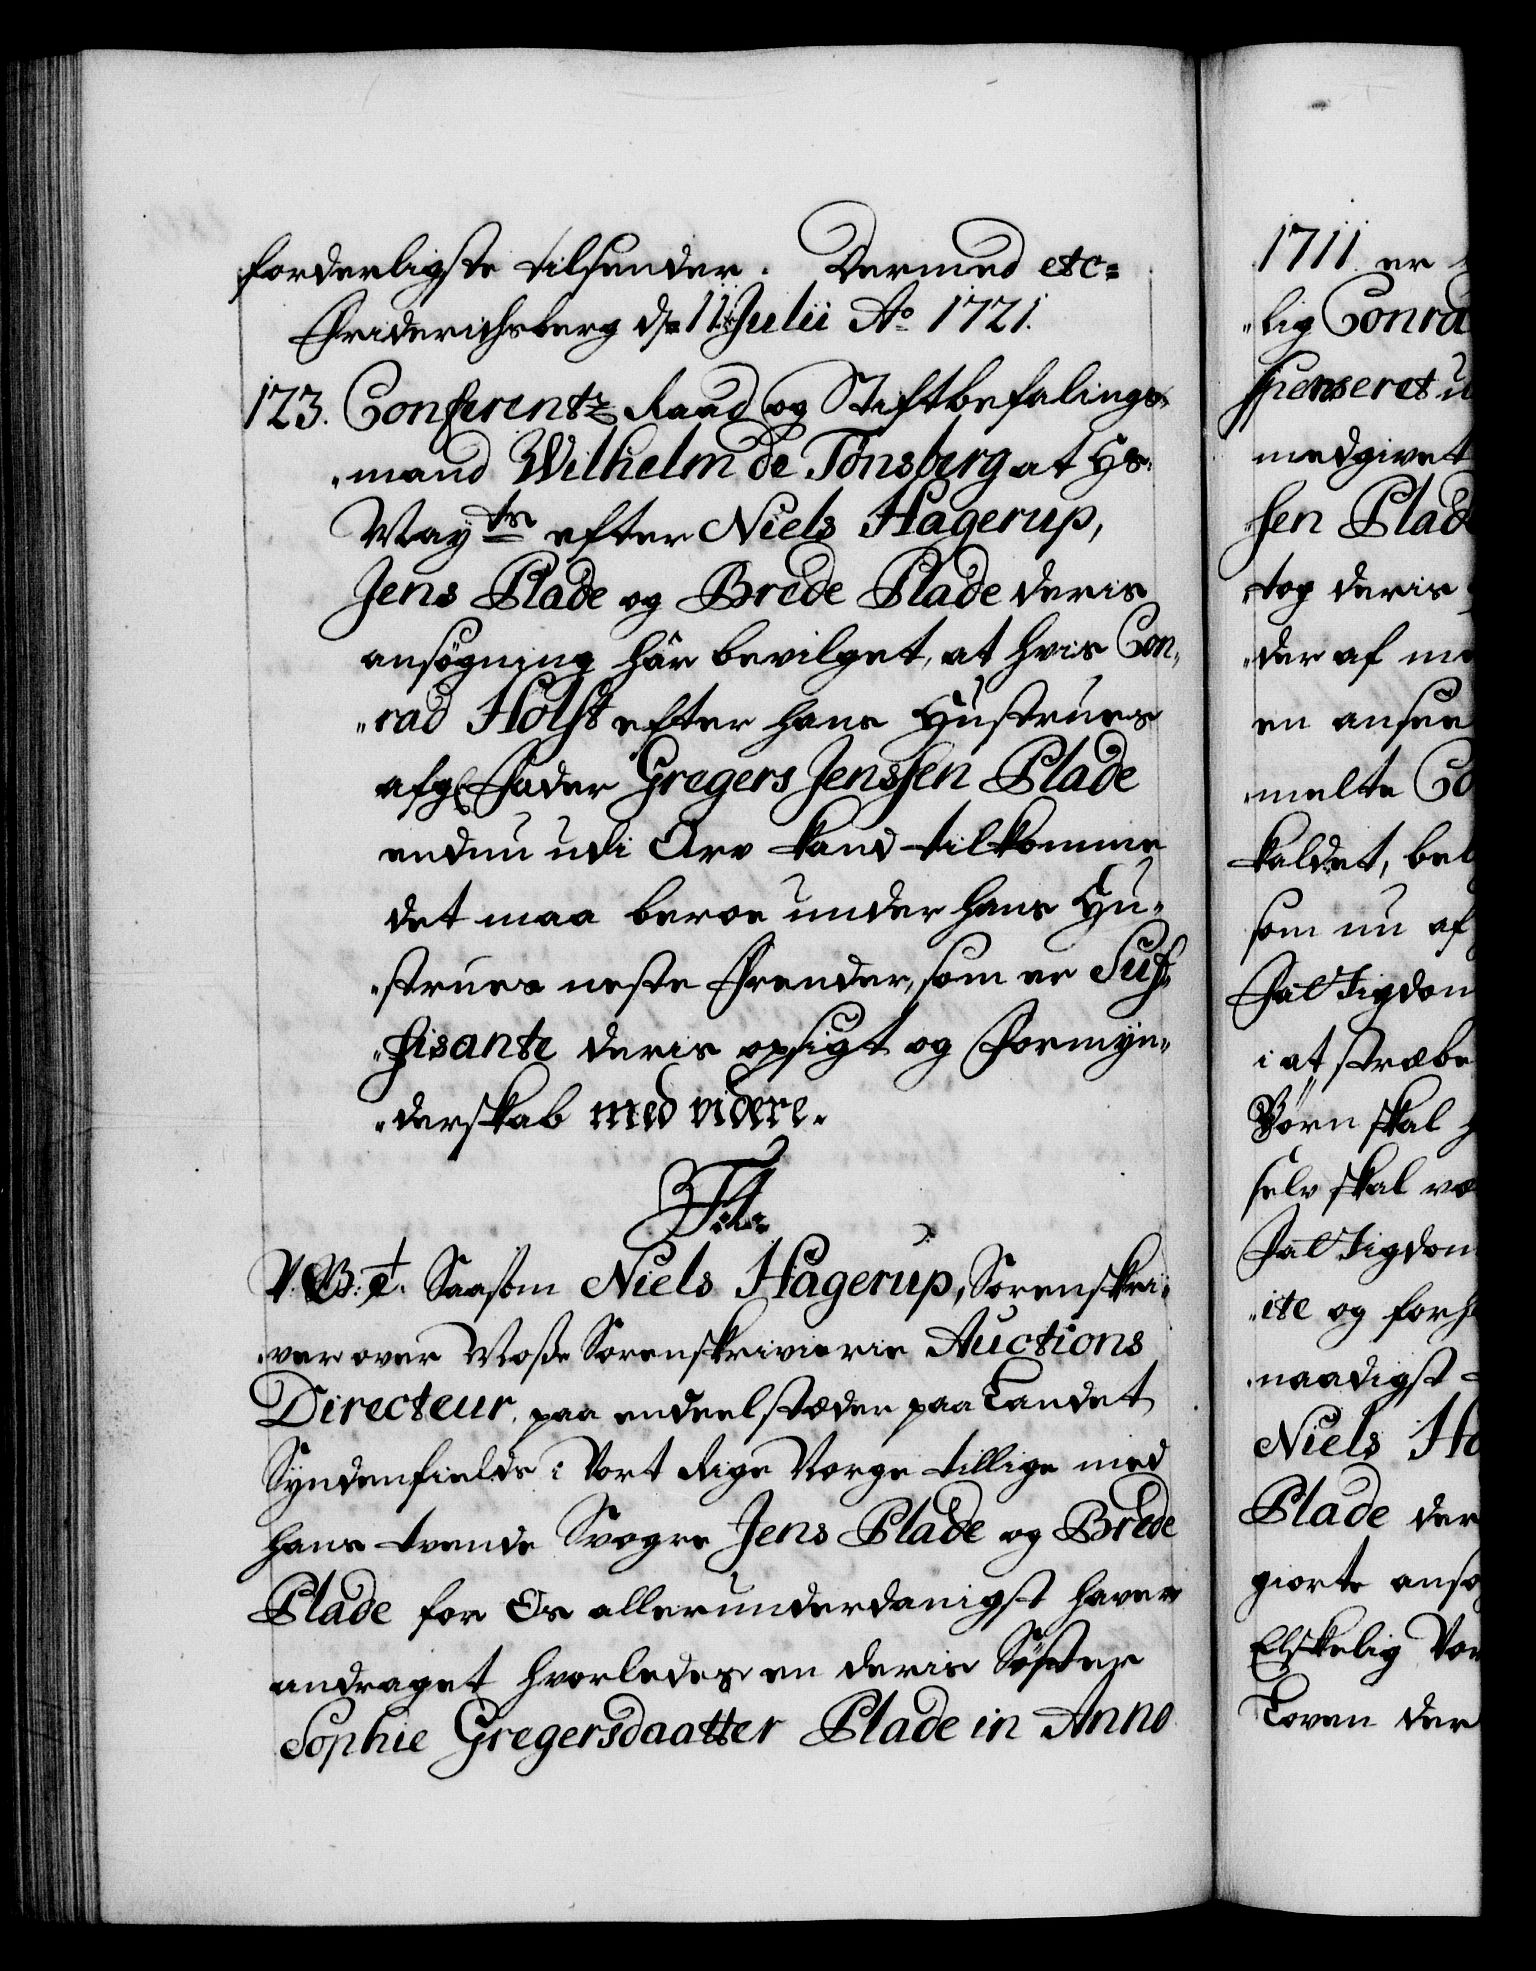 forderligste tilsender. Dermed etc=
Friderichsberg d= 11 Julii Ao 1721.
123. Conferentz Raad og Stiftbefalings-
mand Wilhelm de Tönsberg at Hs:
May:tn efter Niels Hagerup,
Jens Plade og Brede Plade deris
ansögning har bevilget, at hvis Con-
rad Holst efter hans Hustrues
afg: Fader Gregers Jenssen Plade
endnu udi Arv kand tilkomme
det maa beroe under hans Hu-
strues neste Frender, som er Suf-
fisante deris opsigt og Formyn-
derskab med videre.
F4.
V. G: t. Saasom Niels Hagerup, Sorenskri-
ver over Moße Sorenskriverie Auctions
Directeur paa endeel stæder paa Landet
Syndenfields i Vort Rige Norge tillige med
hans tvende Svogre Jens Plade og Brede
Plade for Os allerunderdanigst haver
andraget hvorledes en deris Söster
Sophie Gregersdaatter Plade in Anno
1711 er
lig Conra
penseret u
medgivet
sen Plad
tog deris
der af me
en ansee
melte Co
kaldet, bel
som nu af
Fal Sigdon
i at stræbe
Börn skal
selv skal væ
Fal Sigdon
ite og forh
naadigst
Niels Ha
Plade der
giorte ansø
Elskelig Vor
Loven der